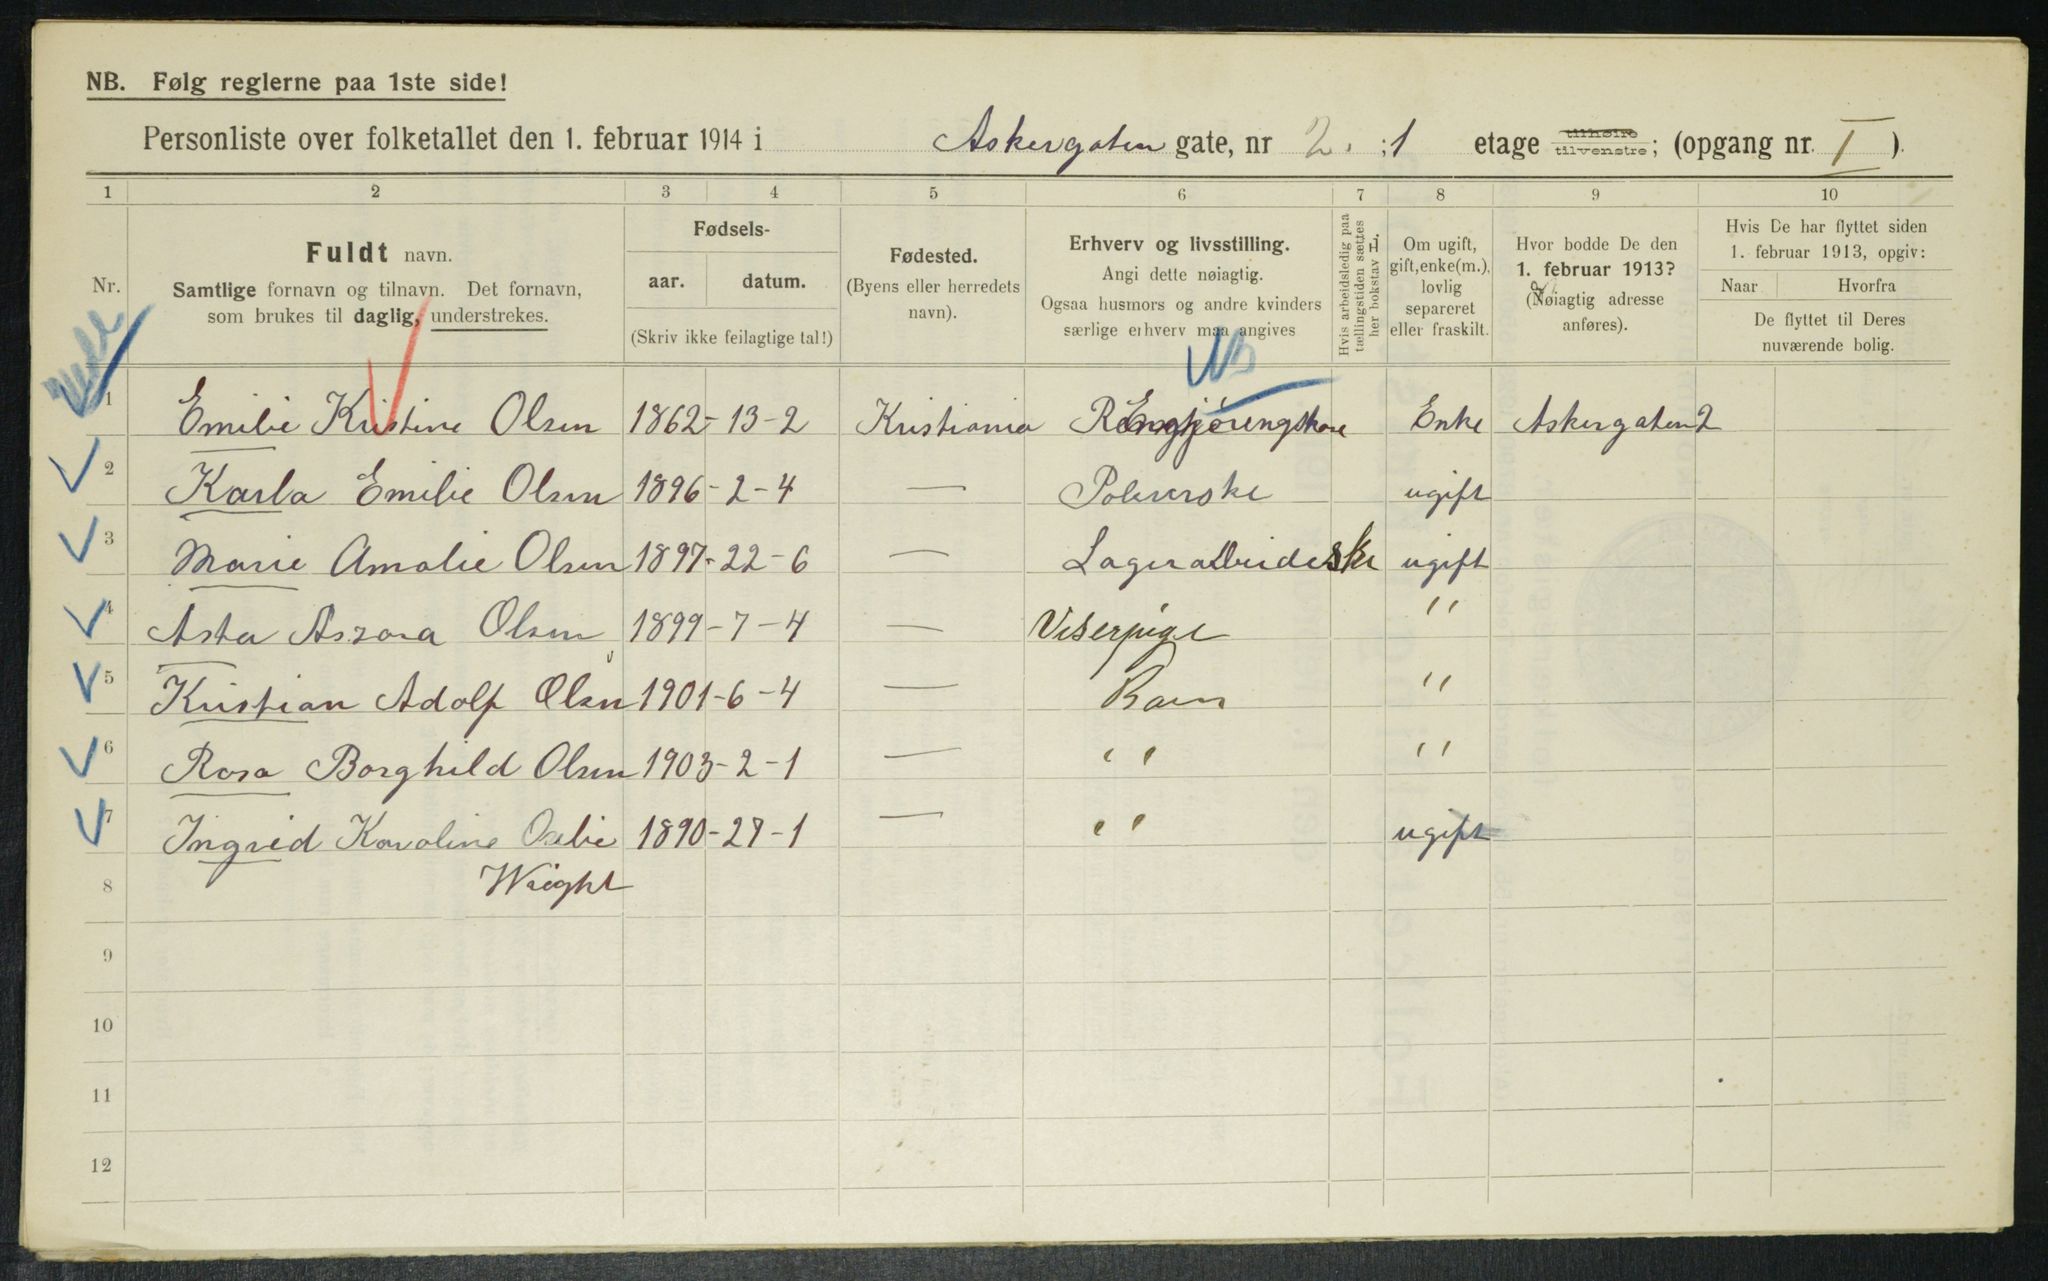 NB. Følg reglerne paa 1ste side!
Personliste over folketallet den 1. februar 1914 i Askergaten gate, nr 2. ; 1 etage tilhøire tilvenstre; (opgang nr. I ).
1 2 3 4 5 6 7 8 9 10
Nr.
Fuldt navn.
Samtlige fornavn og tilnavn. Det fornavn,
som brukes til daglig, understrekes.
Fødsels-
aar. datum.
(Skriv ikke feilagtige tal!)
Fødested.
(Byens eller herredets
navn).
Erhverv og livsstilling.
Angi dette nøiagtig.
Ogsaa husmors og andre kvinders
særlige erhverv maa angives
Hvis arbeidsledig paa
tællingstiden sættes
her bokstav L.
Om ugift,
gift, enke(m.),
lovlig
separeret
eller fraskilt.
Hvor bodde De den
1. februar 1913?
(Nøiagtig adresse
anføres).
Hvis De har flyttet siden
1. februar 1913, opgiv:
Naar Hvorfra
De flyttet til Deres
nuværende bolig.
1 Emilie Kristine Olsen 1862 - 13 - 2 Kristiania Rengjøringskone Enke Askergaten 2
2 Karla Emilie Olsen 1896 - 2 - 4 — Polererske ugift
3 Marie Amalie Olsen 1897 - 22 - 6 — Lagerarbeiderske ugift
4 Asta Aszora Olsen 1899 - 7 - 4 — Viserpige "
5 Kristian Adolf Olsen 1901 - 6 - 4 — Barn "
6 Rosa Borghild Olsen 1903 - 2 - 1 — " "
7 Ingrid Karoline 1890 - 27 - 1 — " ugift
8 Wright
9
10
11
12